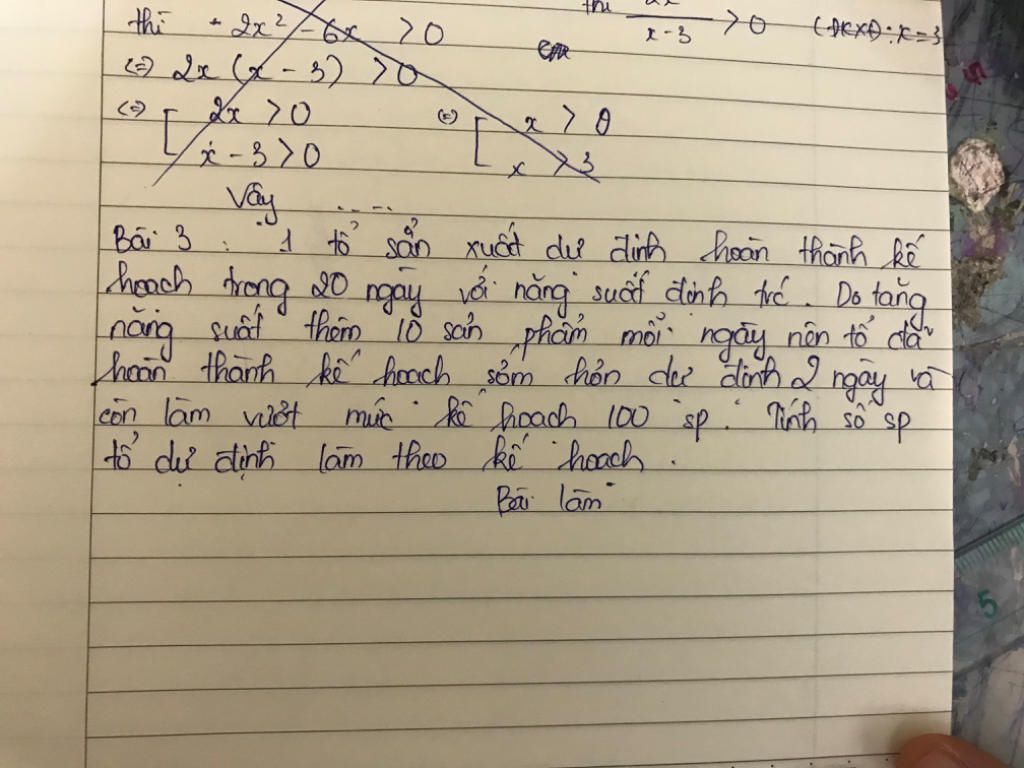 thì 2x² - 6x > 0
thì x - 3 > 0 (ĐKXĐ): x = 3
(=) 2x (x - 3) > 0
(=) [ 2x > 0 (=) [ x > 0
x - 3 > 0 x > 3
Vậy .....
Bài 3 : 1 tổ sản xuất dự định hoàn thành kế
hoạch trong 20 ngày với năng suất định trc. Do tăng
năng suất thêm 10 sản phẩm mỗi ngày nên tổ đã
hoàn thành kế hoạch sớm hơn dự định 2 ngày và
còn làm vượt mức kế hoạch 100 sp. Tính số sp
tổ dự định làm theo kế hoạch.
Bài làm